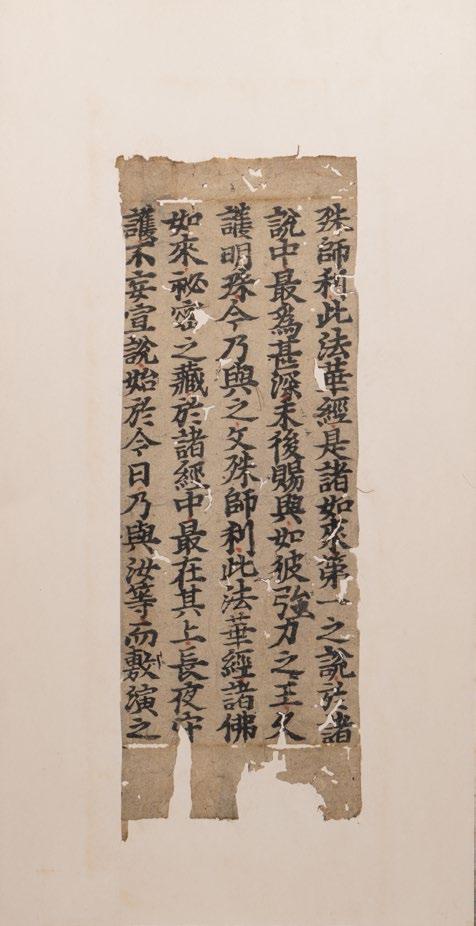 殊師利此法華經是諸如來第一之說於諸
說中最為甚深末後賜與如彼強力之王久
護明珠今乃與之文殊師利此法華經諸佛
如來祕密之藏於諸經中最在其上長夜守
護不妄宣說始於今日乃與汝等而敷演之